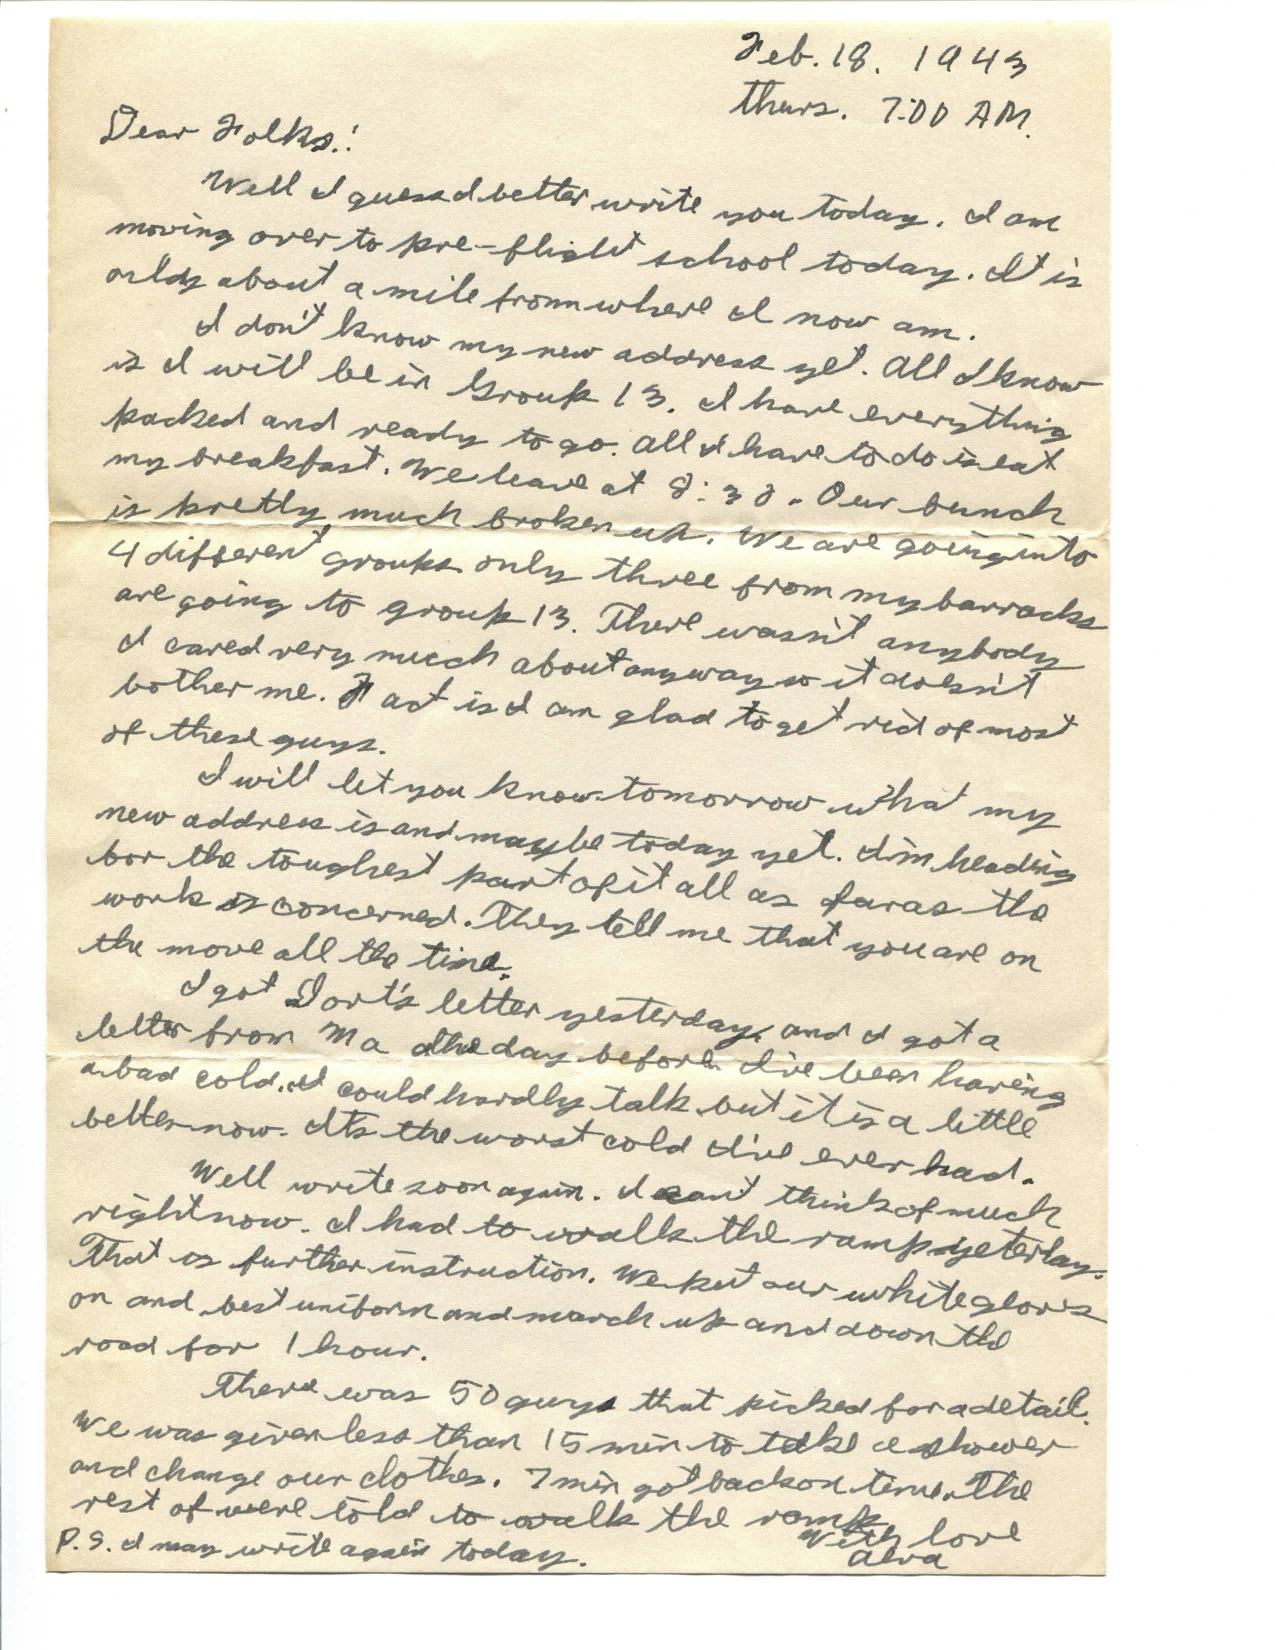 Feb. 18. 1943
Thurs. 7:00 AM.
Dear Folks.!
Well I guess I better write you today. I am
moving over to pre-flight school today. It is
only about a mile from where I now am.
I don't know my new address yet. All I know
is I will be in Group 13. I have everything
packed and ready to go. All I have to do is eat
my breakfast. We leave at 8:30. Our bunch
is pretty much broken up. We are going into
4 different groups only three from my barracks
are going to group 13. There wasn't anybody
I cared very much about anyway so it doesn't
bother me. Fact is I am glad to get rid of most
of these guys.
I will let you know tomorrow what my
new address is and maybe today yet. I'm heading
for the toughest part of it all as far as the
work is concerned. They tell me that you are on
the move all the time.
I got Dort's letter yesterday, and I got a
letter from Ma the day before. I've been having
a bad cold. I could hardly talk but it is a little
better now. It's the worst cold I've ever had.
Well write soon again. I can't think of much
right now. I had to walk the ramp yeterday.
That is further instruction. We put our white gloves
on and best uniform and march up and down the
road for 1 hour.
There was 50 guys that picked for a detail.
We was given less than 15 min to take a shower
and change our clothes. 7 min got back on time. The
rest of were told to walk the ramp
With love
Alva
P.S. I may write again today.